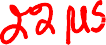 22 µs